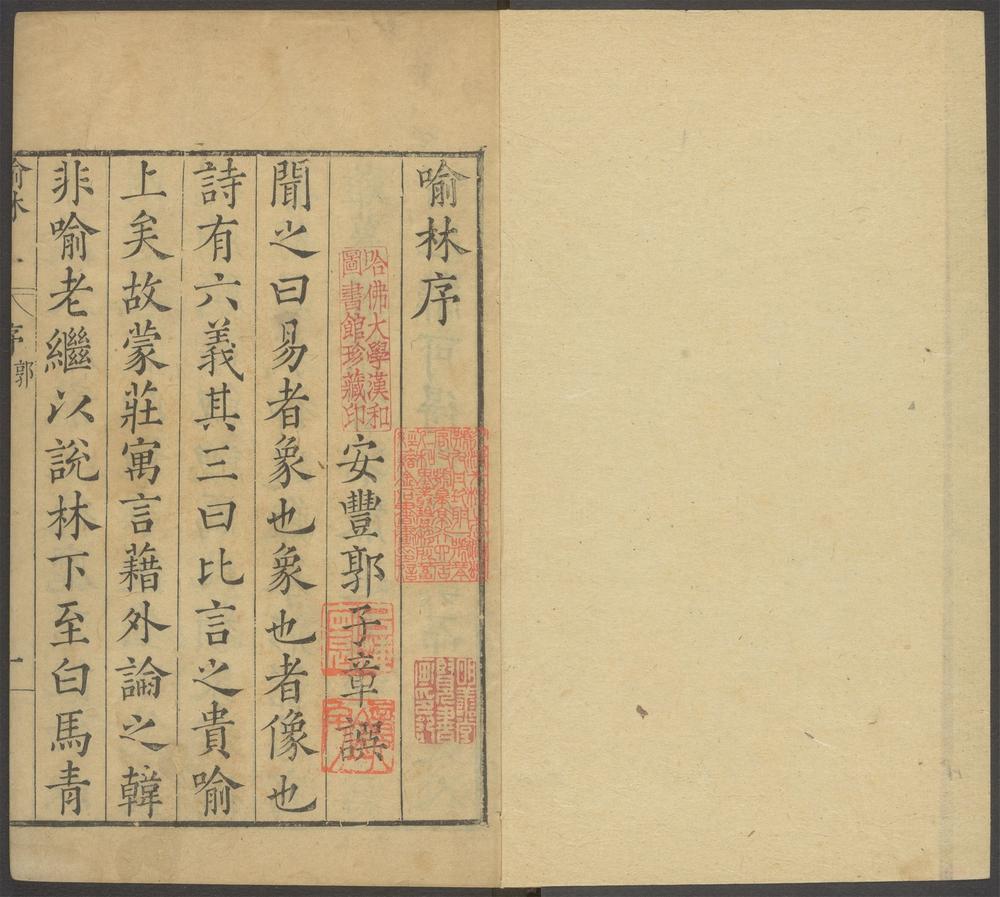 喻林序
哈佛大學漢和
圖書館珍藏印
安豐郭子章譔
聞之曰易者象也象也者像也
詩有六義其三曰比言之貴喻
上矣故蒙莊寓言藉外論之韓
非喻老繼以說林下至白馬青
喻林
序
郭
一